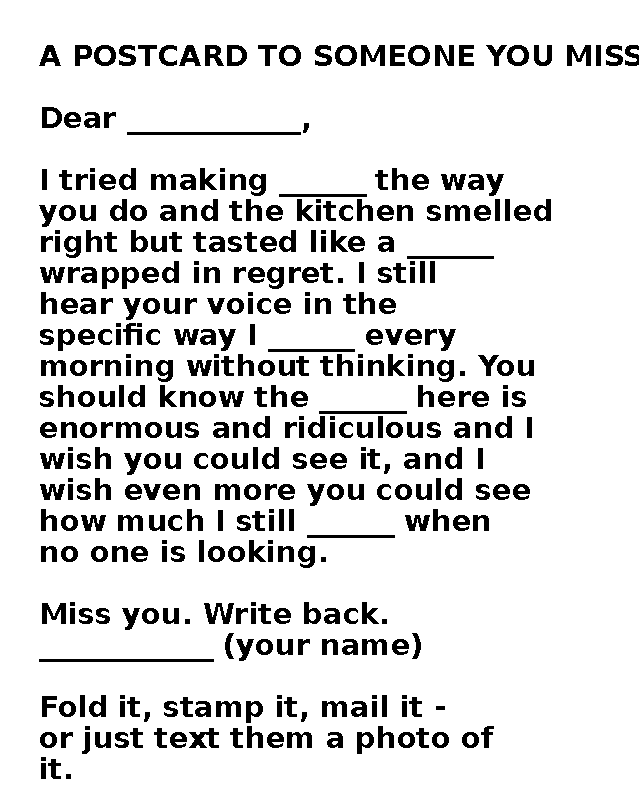 A POSTCARD TO SOMEONE YOU MISS
Dear ____________,
I tried making ______ the way
you do and the kitchen smelled
right but tasted like a ______
wrapped in regret. I still
hear your voice in the
specific way I ______ every
morning without thinking. You
should know the ______ here is
enormous and ridiculous and I
wish you could see it, and I
wish even more you could see
how much I still ______ when
no one is looking.
Miss you. Write back.
____________ (your name)
Fold it, stamp it, mail it -
or just text them a photo of
it.